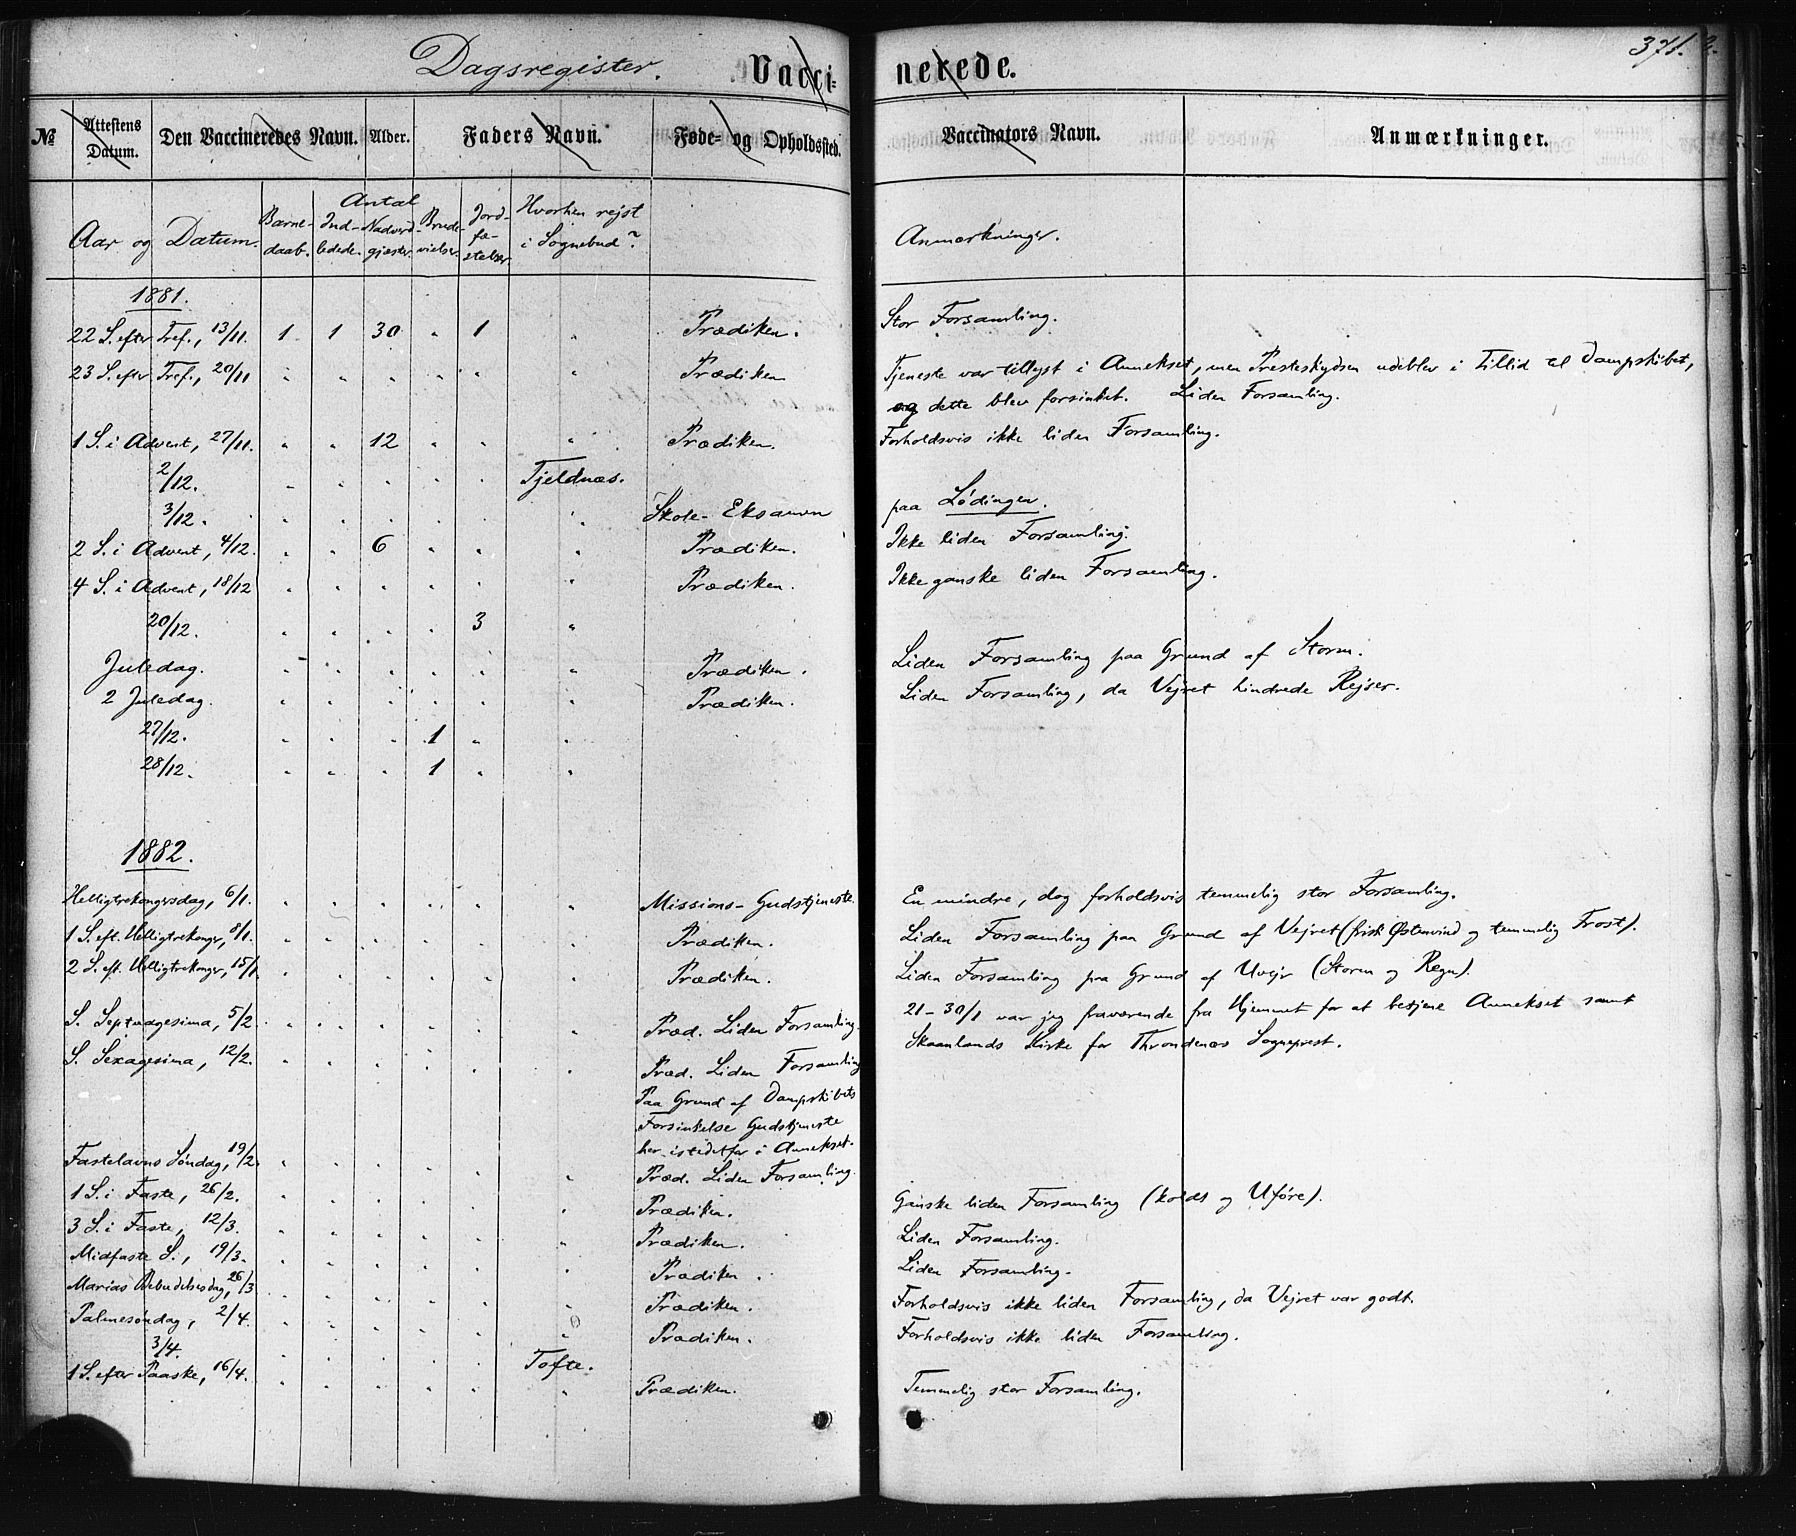 Dagsregister. Vacci- nerede. 371. 2.
№ Attestens Datum. Den Vaccineredes Navn. Alder. Faders Navn. Føde- og Opholdssted. Vaccinators Navn. Anmærkninger.
Aar og Datum. Antal Barnedaab. Indledede. Nadverdgjæster. Brudevielser. Jordfæstelser. Hvorhen rejst i Sognebud? Anmærkninger.
1881.
22 S. efter Tref., 13/11. 1 1 30 " 1 " Prædiken. Stor Forsamling.
23 S. efter Tref., 20/11 " " " " " " Prædiken Tjeneste var tillyst i Annekset, men Presteskydsen udeblev i Tillid til Dampskibet,
og dette blev forsinket. Liden Forsamling.
1 S. i Advent, 27/11. " " 12 " " " Prædiken. Forholdsvis ikke liden Forsamling.
2/12. " " " " " Tjeldnæs.
3/12. " " " " " " Skole-Eksamen paa Lødingen.
2 S. i Advent, 4/12. " " 6 " " " Prædiken. Ikke liden Forsamling.
4 S. i Advent, 18/12 " " " " " " Prædiken. Ikke ganske liden Forsamling.
20/12. " " " " 3 "
Juledag. " " " " " " Prædiken. Liden Forsamling paa Grund af Storm.
2 Juledag. " " " " " " Prædiken. Liden Forsamling, da Vejret hindrede Rejser.
27/12. " " " 1 " "
28/12. " " " 1 " "
1882.
Helligtrekongersdag, 6/1. " " " " " " Missions-Gudstjeneste. En mindre, dog forholdsvis temmelig stor Forsamling.
1 S. eft. Helligtrekonger, 8/1. " " " " " " Prædiken. Liden Forsamling paa Grund af Vejret (frisk Østenvind og temmelig Frost).
2 S. eft. Helligtrekonger, 15/1 " " " " " " Prædiken. Liden Forsamling paa Grund af Uvejr (Storm og Regn).
21-30/1 var jeg fraværende fra Hjemmet for at betjene Annekset samt
S. Septuagesima, 5/2. " " " " " " Præd. Liden Forsamling. Skaanlands Kirke for Throndenæs Sogneprest.
S. Sexagesima, 12/2. " " " " " " Præd. Liden Forsamling
Paa Grund af Dampskibets
Forsinkelse Gudstjeneste
her istedetfor i Annekset.
Fastelavns Søndag, 19/2. " " " " " " Præd. Liden Forsamling.
1 S. i Faste, 26/2. " " " " " " Prædiken. Ganske liden Forsamling (koldt og Uføre).
3 S. i Faste, 12/3. " " " " " " Prædiken. Liden Forsamling.
Midfaste S., 19/3. " " " " " " Prædiken. Liden Forsamling.
Marias Bebudelsesdag, 26/3 " " " " " " Prædiken. Forholdsvis ikke liden Forsamling, da Vejret var godt.
Palmesøndag, 2/4. " " " " " " Prædiken. Forholdsvis ikke liden Forsamling.
3/4. " " " " " Tofte.
1 S. efter Paaske, 16/4. " " " " " " Prædiken. Temmelig stor Forsamling.